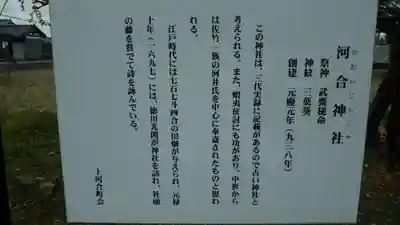 河合神社
かわいじんじゃ
祭神　武甕槌命
神紋　三葉葵
創建　元慶元年（九三八年）
この神社は、三代実録に記載があるので古い神社と
考えられる。また、蝦夷征討にも功があり、中世から
は佐竹一族の河井氏を中心に奉斎されたものと思わ
れる。
江戸時代には七石七斗四合の田畑が与えられ、元禄
十年（一六九七）には、徳川光圀が神社を訪れ、社頭
の藤を賞でて詩を詠んでいる。
上河合町会